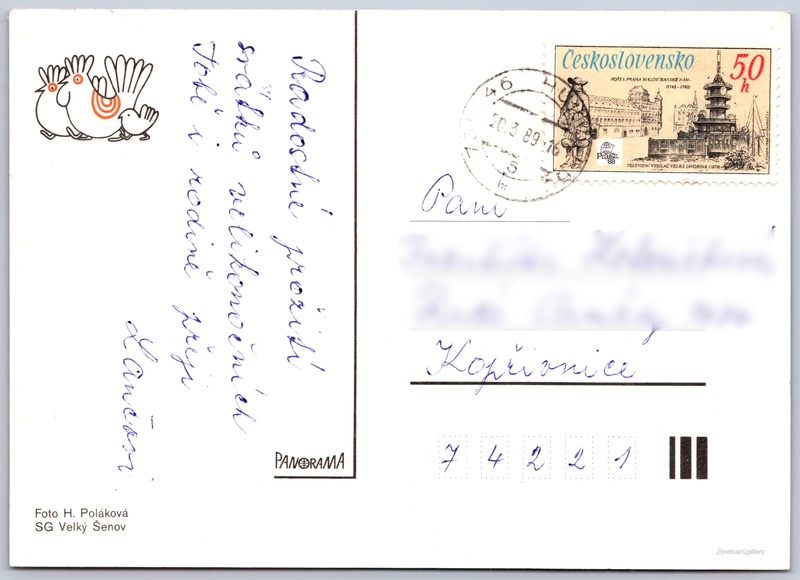 Radostné prožití
svátků velikonočních
Tobě i rodině přeji
Lančovi
PANORAMA
Foto H. Poláková
SG Velký Šenov
Československo
50
h
POŠTA PRAHA MALOSTRANSKÉ NÁM.
(1742-1792)
Praga
88
TELEVIZNÍ VYSÍLAČ VELKÁ JAVOŘINA (1979)
46
20.3.89-16
Paní
Kopřivnice
7 4 2 2 1